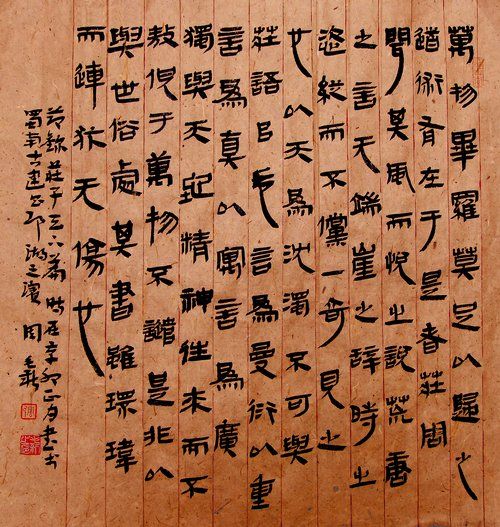 萬物畢羅莫足以歸之
道術有在于是者莊周
聞其風而悅之說荒唐
之言无端崖之辭時之
恣縱而不儻一奇見之
也以天為沈濁不可與
莊語以卮言為曼衍以重
言為真以寓言為廣
獨與天地精神往來而不
敖倪于萬物不譴是非以
與世俗處其書雖環瑋
而連犿无傷也
節錄莊子 時在辛卯正月書于
蜀南古建 湖之濱 周